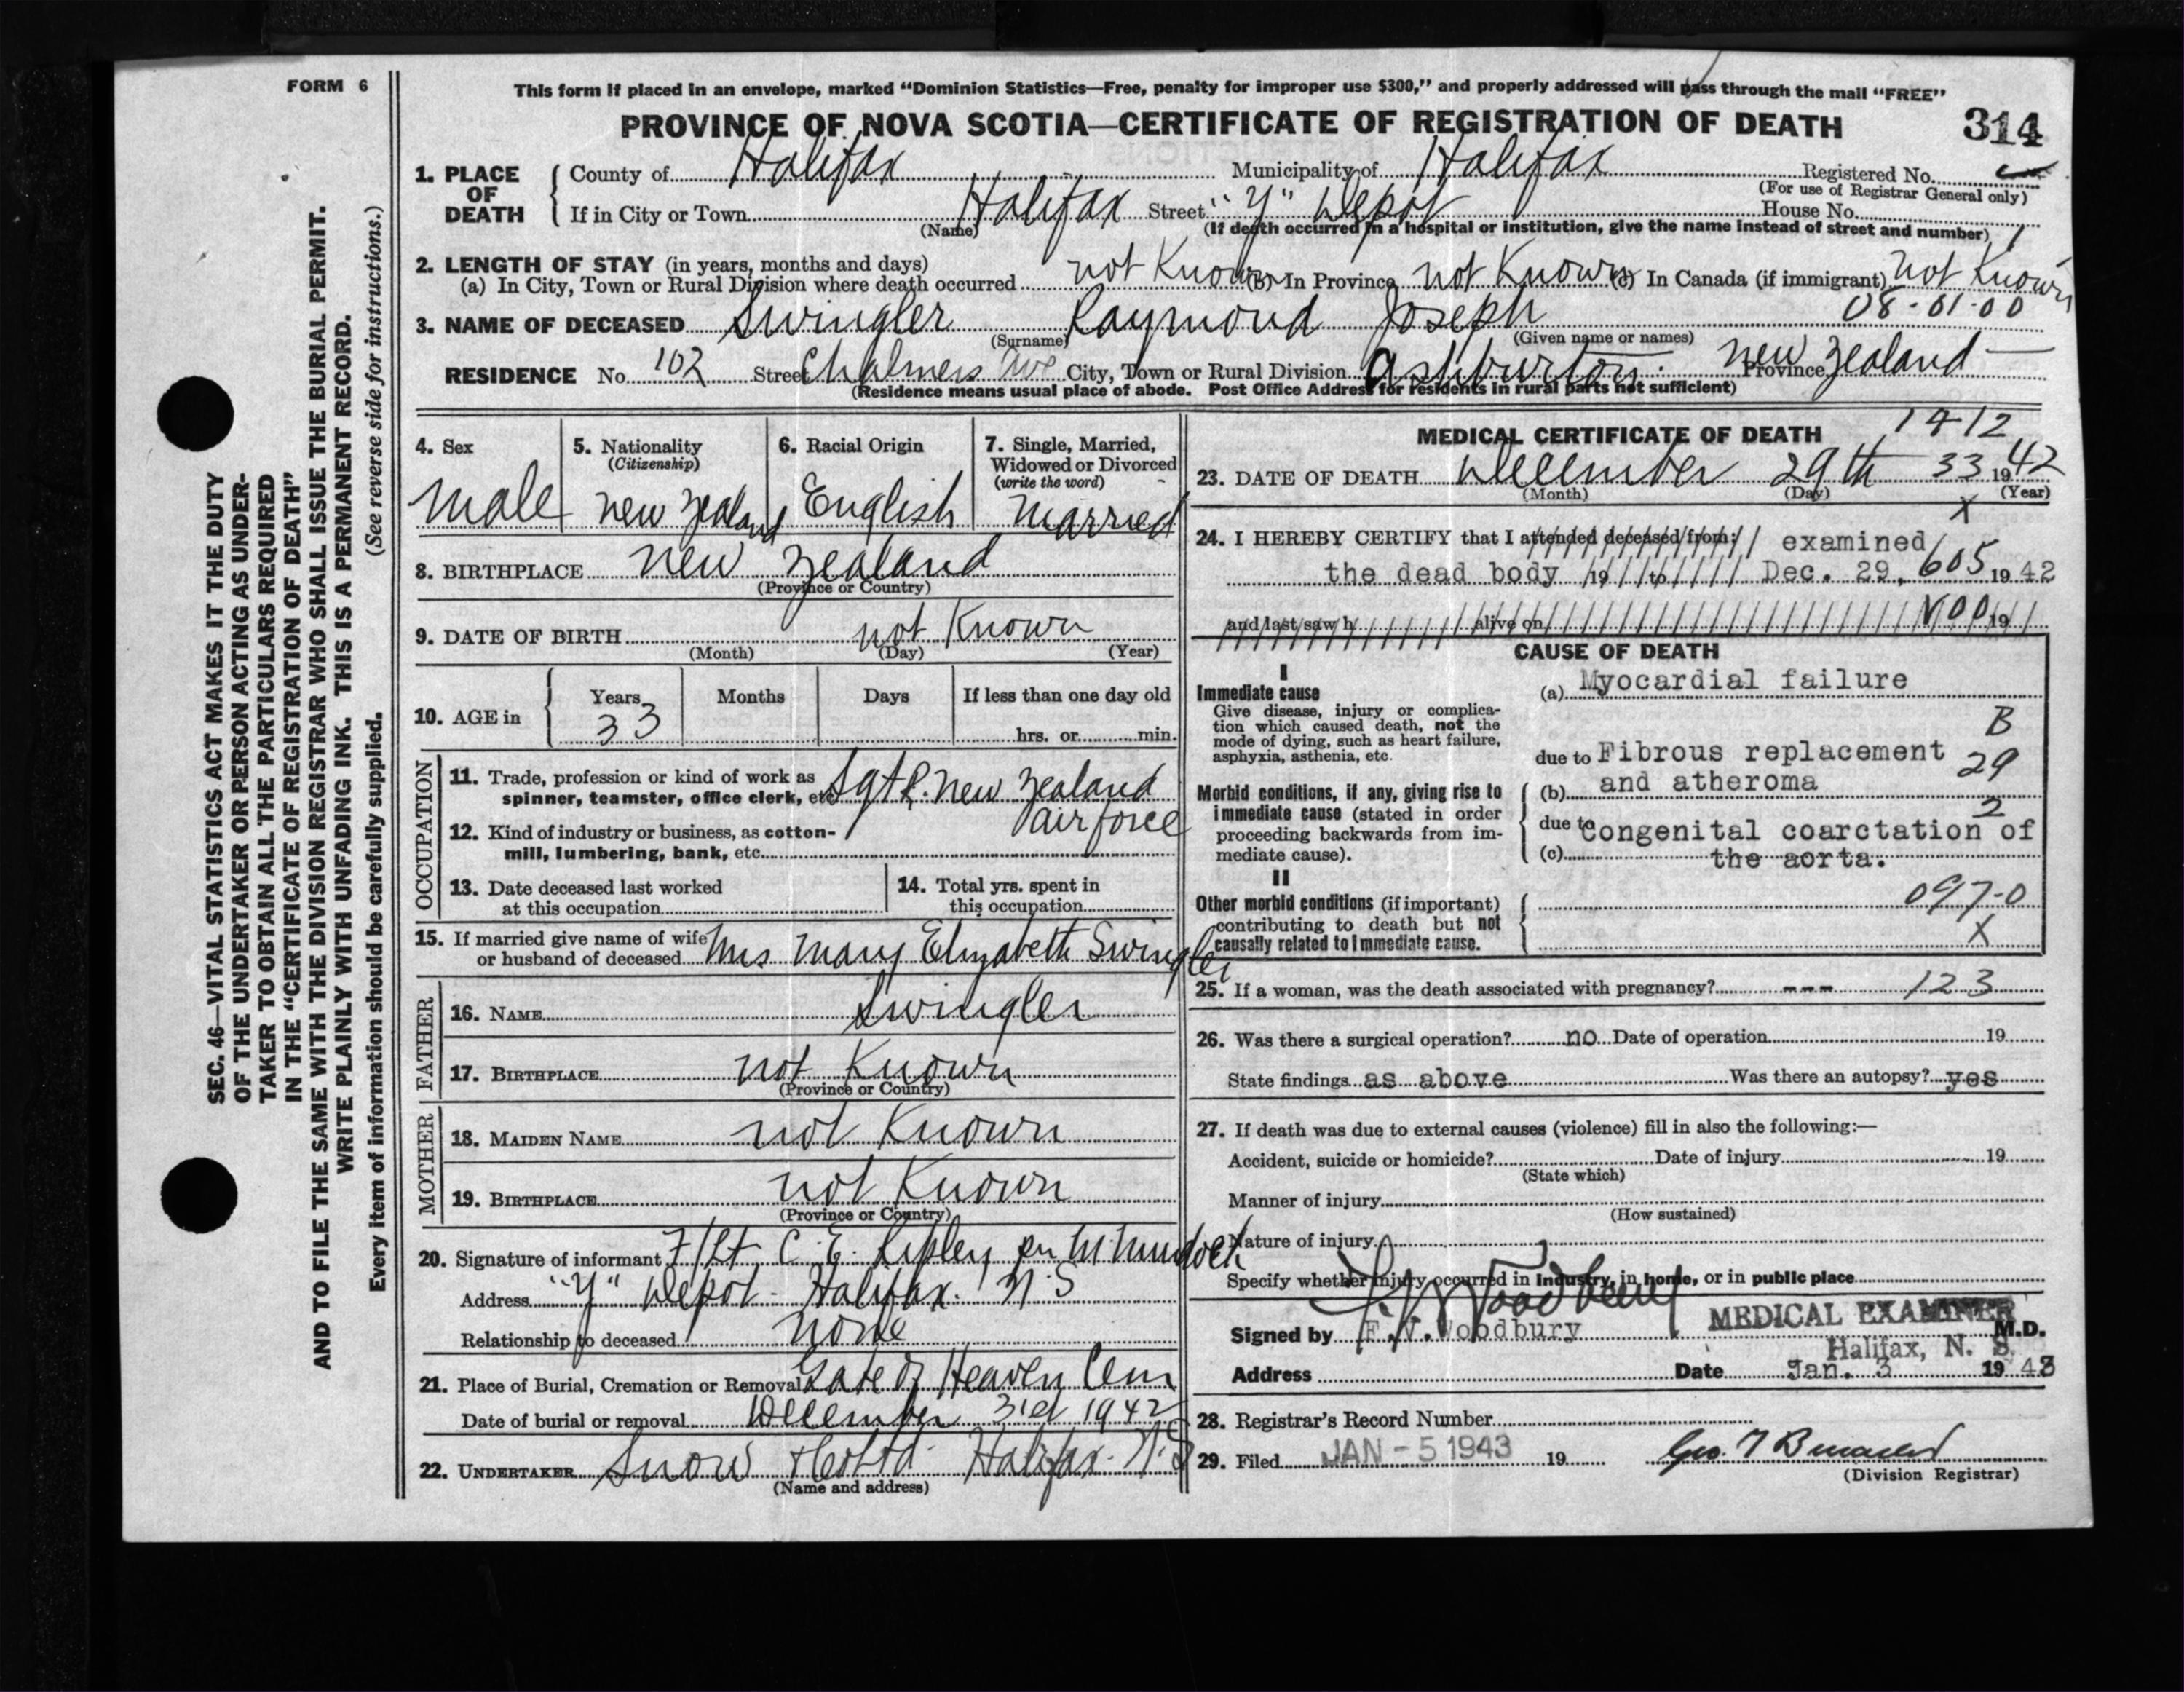 FORM 6
This form if placed in an envelope, marked “Dominion Statistics—Free, penalty for improper use $300,” and properly addressed will pass through the mail “FREE”
PROVINCE OF NOVA SCOTIA—CERTIFICATE OF REGISTRATION OF DEATH 314
1. PLACE OF DEATH
County of Halifax Municipality of Halifax Registered No.
(For use of Registrar General only)
If in City or Town Halifax Street "Y" Depot House No.
(Name) (If death occurred in a hospital or institution, give the name instead of street and number) 1
2. LENGTH OF STAY (in years, months and days)
(a) In City, Town or Rural Division where death occurred not Known (b) In Province not Known (c) In Canada (if immigrant) not Known
08-01-00
3. NAME OF DECEASED Swingler Raymond Joseph
(Surname) (Given name or names)
RESIDENCE No. 102 Street Chalmers Ave City, Town or Rural Division Ashburton. Province New Zealand
(Residence means usual place of abode. Post Office Address for residents in rural parts not sufficient)
4. Sex
male
5. Nationality
(Citizenship)
New Zealand
6. Racial Origin
English
7. Single, Married,
Widowed or Divorced
(write the word)
Married
8. BIRTHPLACE New Zealand
(Province or Country)
9. DATE OF BIRTH not Known
(Month) (Day) (Year)
10. AGE in Years Months Days If less than one day old
33 hrs. or min.
OCCUPATION
11. Trade, profession or kind of work as
spinner, teamster, office clerk, etc. Sgt R. New Zealand
air force
12. Kind of industry or business, as cotton-
mill, lumbering, bank, etc.
13. Date deceased last worked
at this occupation
14. Total yrs. spent in
this occupation
15. If married give name of wife
or husband of deceased Mrs Mary Elizabeth Swingler
FATHER
16. NAME Swingler
17. BIRTHPLACE not Known
(Province or Country)
MOTHER
18. MAIDEN NAME not Known
19. BIRTHPLACE not Known
(Province or Country)
20. Signature of informant F/Lt C. E. Ripley per M. Murdoch
Address "Y" Depot - Halifax. N.S
Relationship to deceased none
21. Place of Burial, Cremation or Removal Gate of Heaven Cem
Date of burial or removal December 31st 1942
22. UNDERTAKER Snow & Co Ltd - Halifax. N.S
(Name and address)
MEDICAL CERTIFICATE OF DEATH
14-12
23. DATE OF DEATH December 29th 33 1942
(Month) (Day) (Year)
X
24. I HEREBY CERTIFY that I attended deceased from: examined
the dead body 19 to Dec. 29, 605 1942
and last saw h alive on V00 19
CAUSE OF DEATH
I
Immediate cause
Give disease, injury or complica-
tion which caused death, not the
mode of dying, such as heart failure,
asphyxia, asthenia, etc.
(a) Myocardial failure
B
due to Fibrous replacement
29
Morbid conditions, if any, giving rise to
immediate cause (stated in order
proceeding backwards from im-
mediate cause).
(b) and atheroma
2
due to Congenital coarctation of
(c) the aorta.
II
Other morbid conditions (if important)
contributing to death but not
causally related to immediate cause.
097-0
X
25. If a woman, was the death associated with pregnancy? --- 123
26. Was there a surgical operation? no Date of operation 19
State findings as above Was there an autopsy? yes
27. If death was due to external causes (violence) fill in also the following:—
Accident, suicide or homicide? Date of injury 19
(State which)
Manner of injury
(How sustained)
Nature of injury
Specify whether injury occurred in industry, in home, or in public place
F.V. Woodbury
Signed by F.V. Woodbury MEDICAL EXAMINER M.D.
Halifax, N. S.
Address Date Jan. 3 1943
28. Registrar's Record Number
29. Filed JAN - 5 1943 19
(Division Registrar)
SEC. 46—VITAL STATISTICS ACT MAKES IT THE DUTY
OF THE UNDERTAKER OR PERSON ACTING AS UNDER-
TAKER TO OBTAIN ALL THE PARTICULARS REQUIRED
IN THE “CERTIFICATE OF REGISTRATION OF DEATH”
AND TO FILE THE SAME WITH THE DIVISION REGISTRAR WHO SHALL ISSUE THE BURIAL PERMIT.
WRITE PLAINLY WITH UNFADING INK. THIS IS A PERMANENT RECORD.
Every item of information should be carefully supplied. (See reverse side for instructions.)